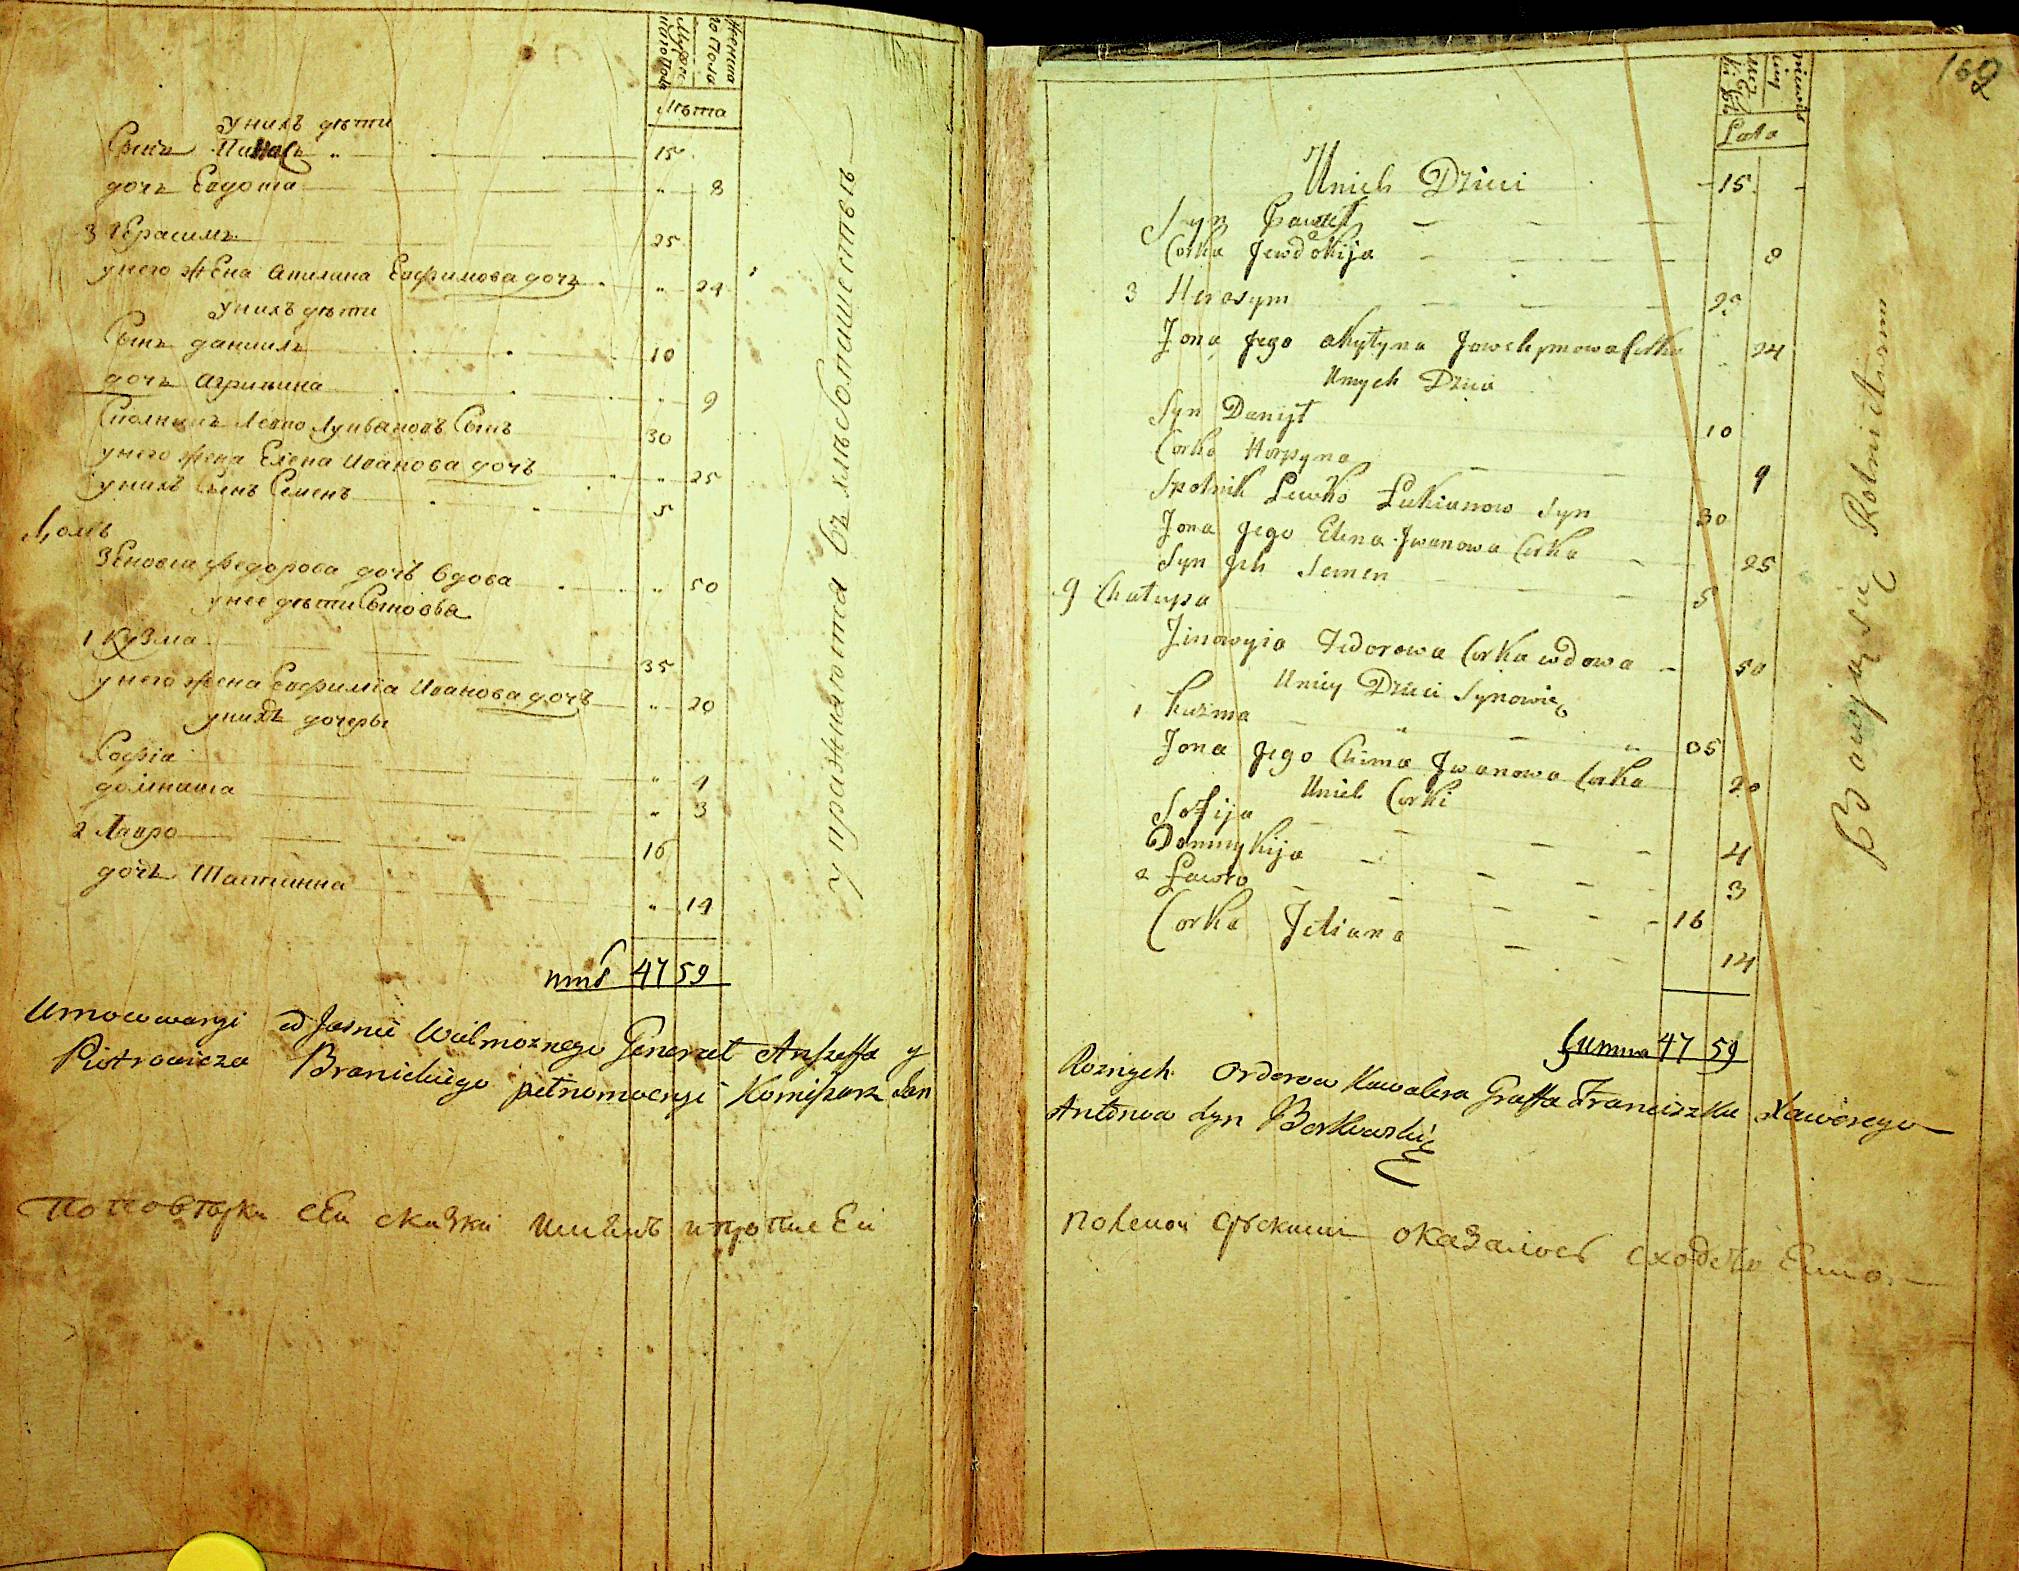 Мужескаго Пола
Женскаго Пола
Лѣта
У нихъ дѣти
Сынъ Пинасъ 15
дочь Евдотia " 8
3 Герасимъ 25
у него жена Акилина Евфимова дочь " 24
У нихъ дѣти
Сынъ даниилъ 10
дочь Агрипина " 9
Сполникъ Левко Лукьановъ Сынъ 30
у него жена Елена Иванова дочь " 25
у нихъ Сынъ Семенъ 5
Домъ
Зеновiа Федорова дочь вдова " 50
у нее дѣти Сыновья
1 Кузма 35
у него жена Евфимiа Иванова дочь " 20
у нихъ дочеры
Софiа " 4
домникiа " 3
2 Лавро 16
дочь Татианна " 14
47 59
Упражняются въ хлѣбопашествѣ
Umocowanyi od Jasnie Wielmoznego General Anszeffa y
Piotrowicza Branickiego pełnomocnyi Komisarz Jan
По повторки сей сказки
162
Lata
U nich Dzieci 15
Syn Paweł
Corka Jewdokija 8
3 Herasym 25
Zona jego Akylyna Jowchymowa Corka 24
U nych Dzieci
Syn Danyił 10
Corka Horpyna 9
Spolnik Lewko Łukianow Syn 30
Zona jego Elena Jwanowa Corka 25
Syn Jch Semen 5
9 Chałupa
Zinowyia Fedorowa Corka wdowa 50
U niey Dzieci Synowie
1 Kuzma 35
Zona jego Chima Jwanowa Corka 20
U nich Corki
Sofija 4
Domnykija 3
2 Ławro 16
Corka Tetiana 14
Summa 47 59
Bawią się Rolnictwem
Roznych Orderow Kawalera Graffa Franciszka Xawerego
Antonow Syn Borkowski
оказалось сходство